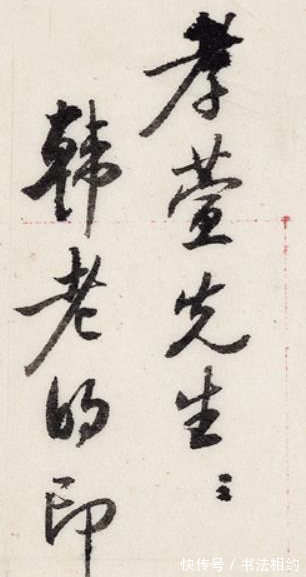 孝萱先生：
韩老的印
快传号／书法相约